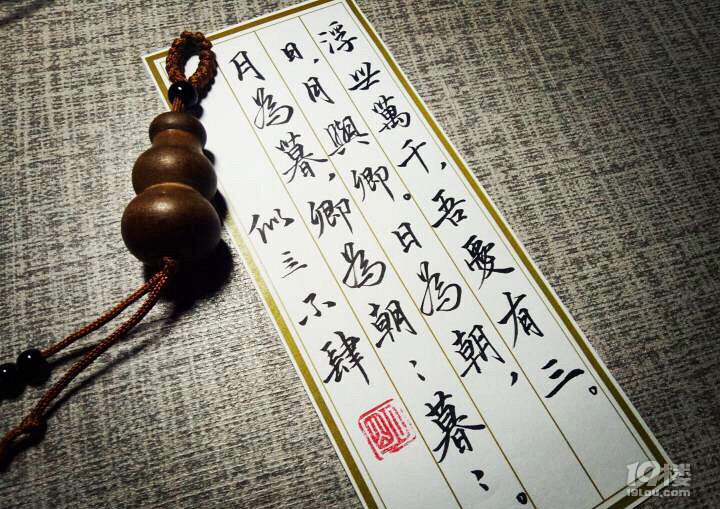 浮世萬千,吾愛有三。
日,月與卿。日為朝,
月為暮,卿為朝〻暮〻。
似三不肆
19楼
19lou.com